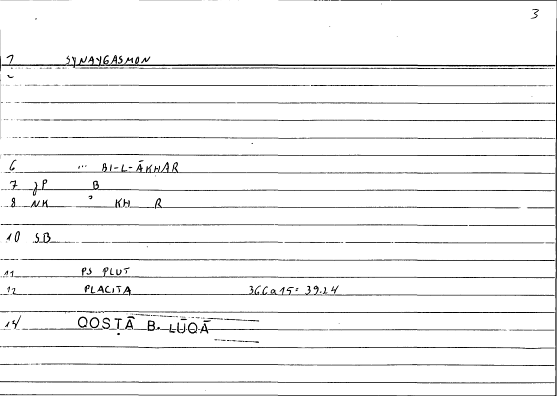 3
1 SYNAYGASMON
6 ... BI-L-ĀKHAR
7 JP B
8 NK ʾ KH R
10 SB
11 PS PLUT
12 PLACITA 366a15 = 39.24
14 QOSṬĀ B. LŪQĀ